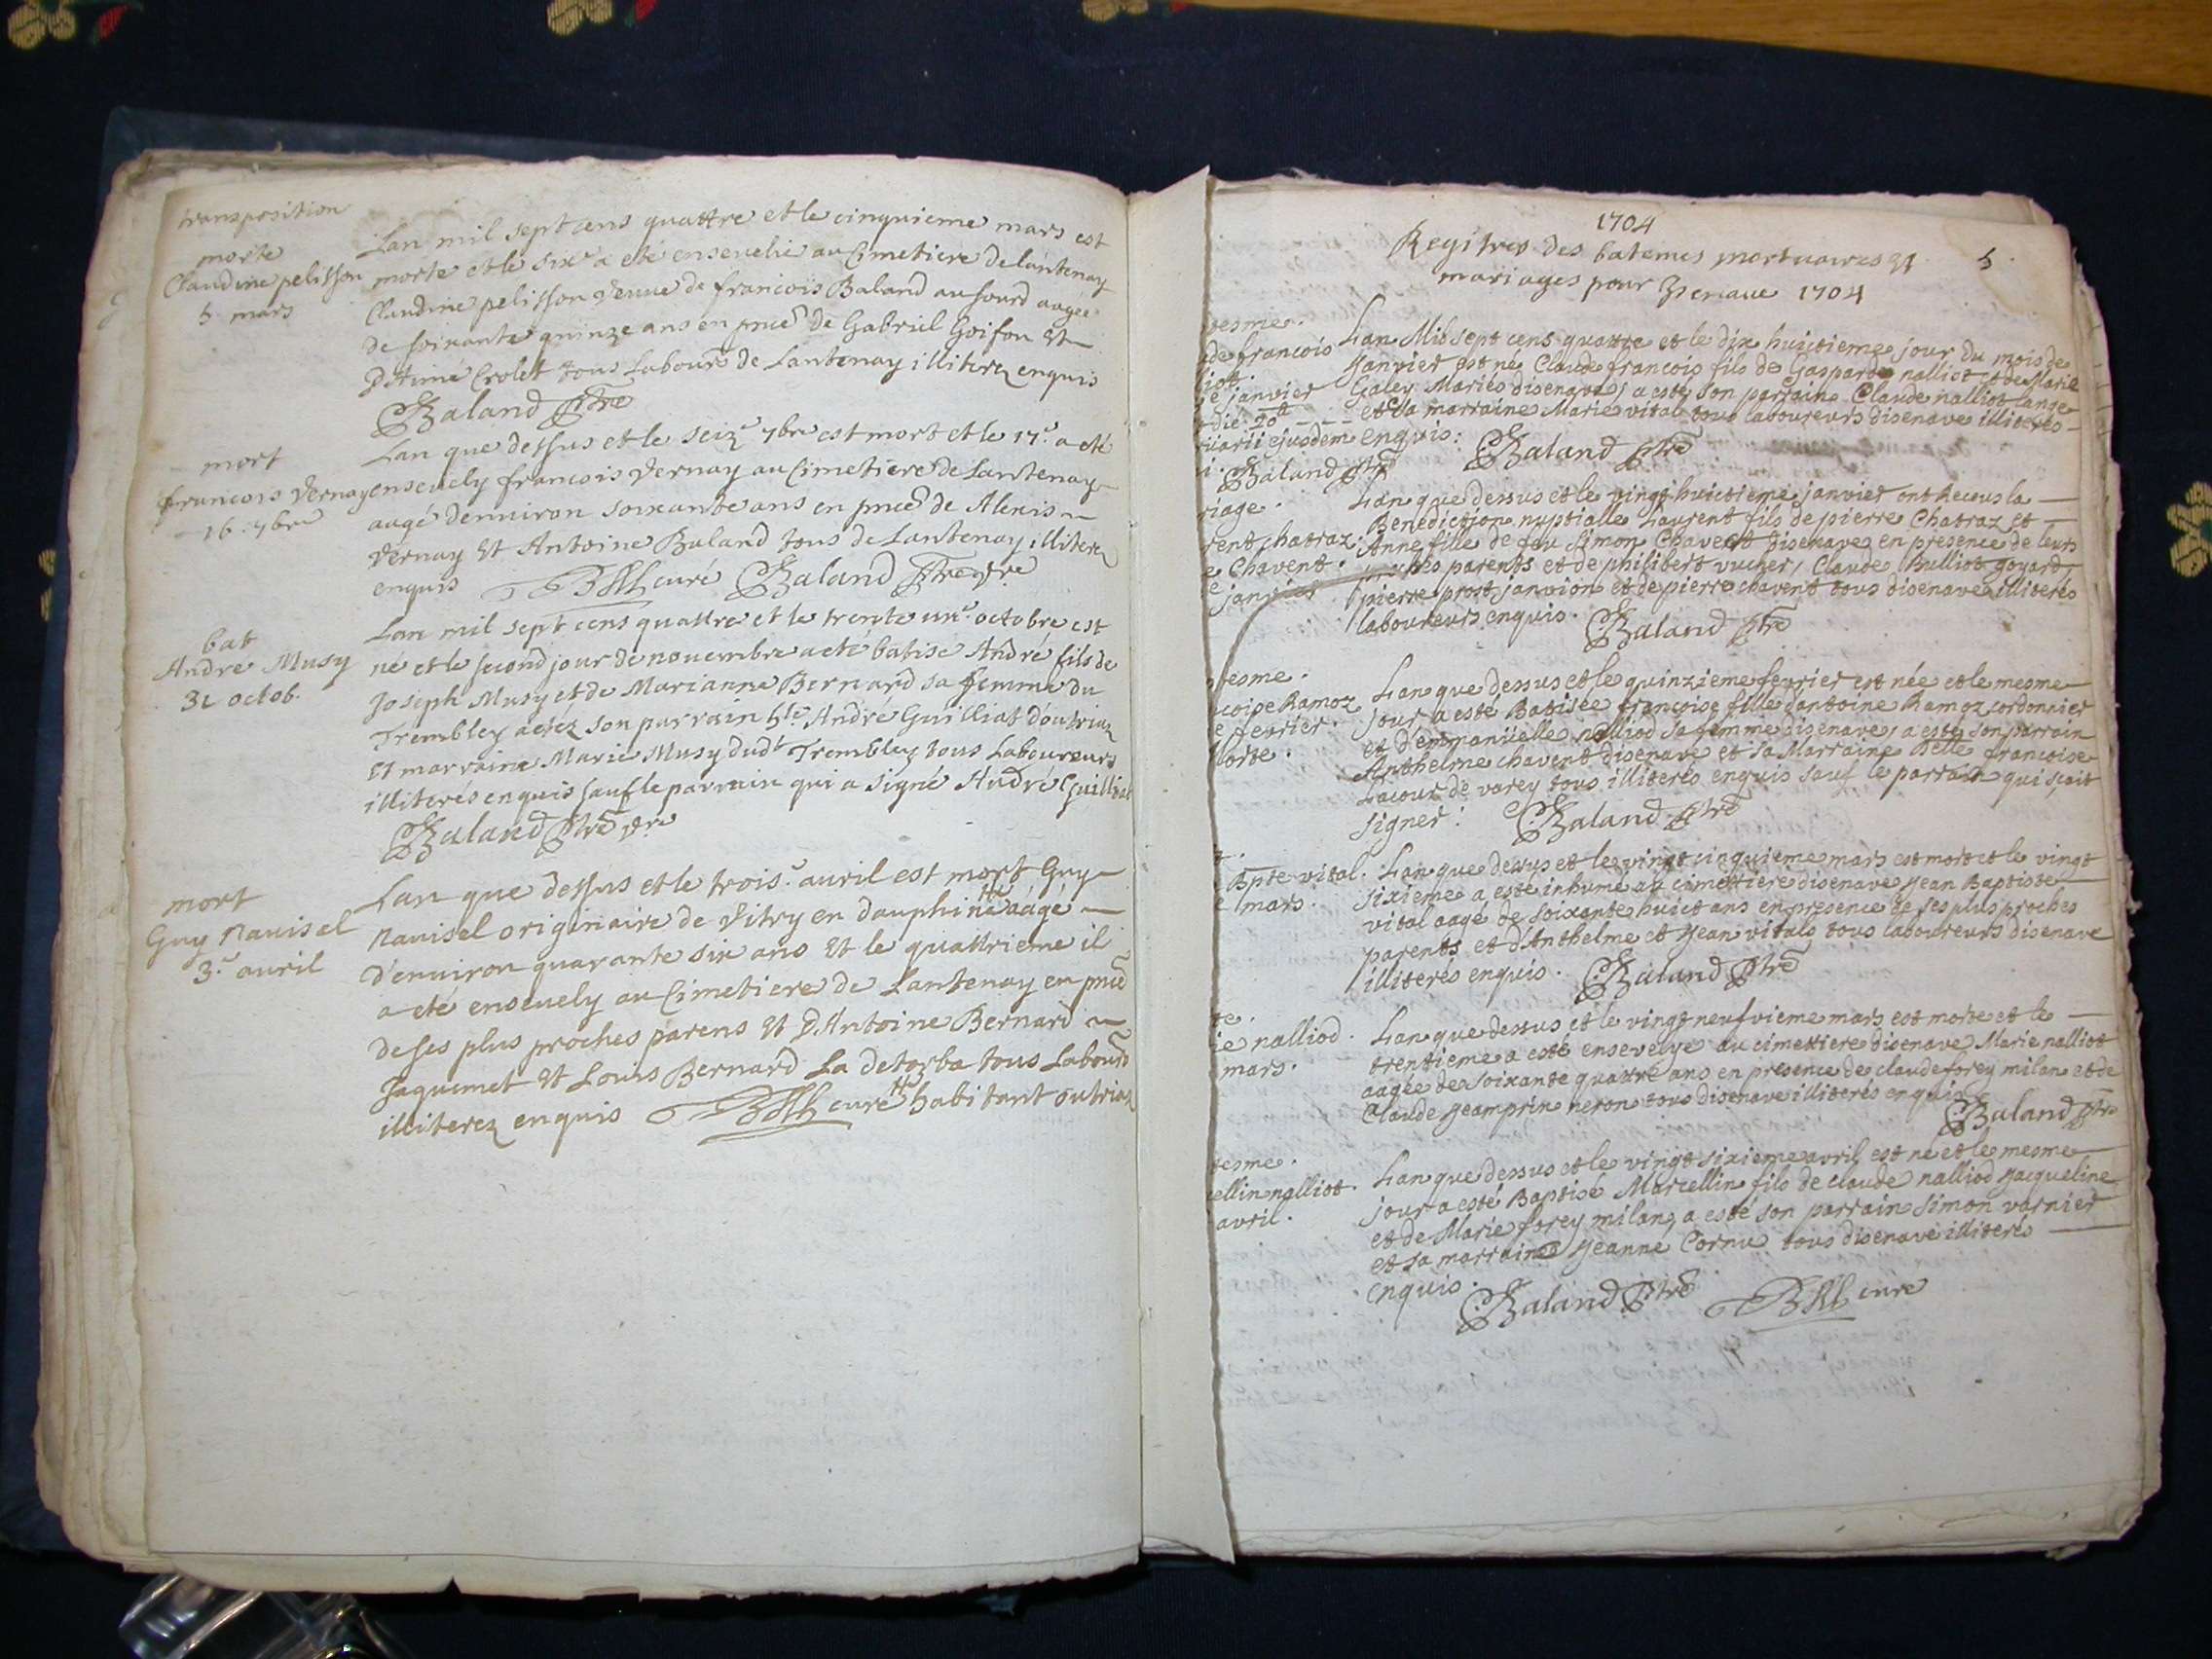 transposition
morte
Claudine pelisson
5 mars
Lan mil sept cens quattre et le cinquieme mars est
morte et le six.e a eté ensevelie au Cimetiere de lantenay
Claudine pelisson veuve de francois Baland au sourd aagée
de soixante quinze ans en pnce de Gabriel Goifon Et
d'Aimé Crolet tous Labours de Lantenay illiterez enquis
CBaland ptre
mort
francois vernay
16. 7bre
Lan que dessus et le seize 7bre est mort et le 17.e a eté
ensevely francois vernay au Cimetiere de Lantenay
aagé denviron soixante ans en pnce de Alexis
vernay Et Antoine Baland tous de Lantenay illiterez
enquis curé CBaland ptre vre
bat
André Musy
31 octob.
Lan mil sept cens quattre et le trente un.e octobre est
né et le second jour de novembre a eté batisé André fils de
Joseph Musy et de Marianne Bernard sa femme du
Trembley a etéz son parrain h.te André Guilliat d'outriaz
Et marraine Marie Musy dud.t Trembley tous Laboureurs
illiterés enquis sauf le parrain qui a signé André Guilliat
CBaland ptre vre
mort
Guy navisel
3.e avril
Lan que dessus et le trois.e avril est mort Guy
navisel originaire de vitry en dauphiné # aagé
d'environ quarante six ans Et le quattrieme il
a eté ensevely au Cimetiere de Lantenay en pnce
de ses plus proches parens Et d'Antoine Bernard
Jaquemet Et Louis Bernard La detorba tous Labours
illiterez enquis curé # habitant outriaz
1704
Registres des batemes mortuaires et
mariages pour Izenave 1704
5
esme.
de francois
janvier
die 20
ejusdem
CBaland ptre
Lan Mil sept cens quattre et le dix huictieme jour du mois de
Janvier est né Claude francois fils de Gaspard nalliot et de Marie
Galey Mariés disenave, a esté son parrain Claude nalliot lange
et sa marraine Marie vital tous laboureurs disenave illiterés
enquis: CBaland ptre
riage.
rent chatraz.
e Chavent.
janvier
Lan que dessus et le vingt huictieme janvier ont Receus la
Benediction nuptialle Laurent fils de pierre Chatraz et
Anne fille de feu Simon Chavent disenave en presence de leurs
parents et de philibert vucher, Claude Bulliot goyard,
pierre prost janvion et de pierre chavent tous disenave illiterés
laboureurs enquis. CBaland ptre
esme.
coise Ramoz
e fevrier.
orte.
Lan que dessus et le quinzieme fevrier est née et le mesme
jour a esté Batisée francoise fille d'antoine Ramoz cordonnier
et d'emmanuelle nalliod sa femme disenave, a esté son parrain
Anthelme chavent disenave et sa Marraine Belle francoise
Lacour de varey tous illiterés enquis sauf le parrain qui sçait
signer: CBaland ptre
Bpte vital.
e mars.
Lan que dessus et le vingt cinquieme mars est mort et le vingt
sixieme a esté inhumé au cimettiere disenave Jean Baptiste
vital aagé de soixante huict ans en presence de ses plus proches
parents et d'Anthelme et Jean vitals tous laboureurs disenave
illiterés enquis. CBaland ptre
te.
ie nalliod.
mars.
Lan que dessus et le vingt neufvieme mars est morte et le
trentieme a esté ensevelye au cimettiere disenave Marie nalliot
aagée de soixante quattre ans en presence de claude forey milan et de
Claude Jeamprin neron tous disenave illiterés enquis
CBaland ptre
tesme.
ellin nalliot.
avril.
Lan que dessus et le vingt sixieme avril est né et le mesme
jour a esté Baptisé Marcellin fils de claude nalliod Jacqueline
et de Marie forey milan, a esté son parrain simon varnier
et sa marraine Jeanne Cornu tous disenave illiterés
enquis.
CBaland ptre curé